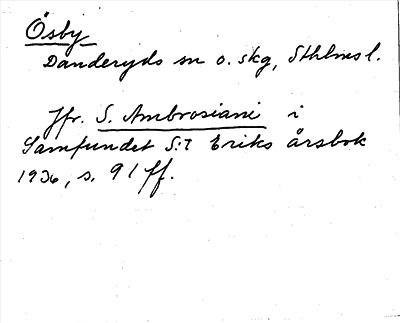 Ösby
Danderyds sn o. skg, Sthlms l.
Jfr. S. Ambrosiani i
Samfundet S:t Eriks årsbok
1936, s. 91 ff.